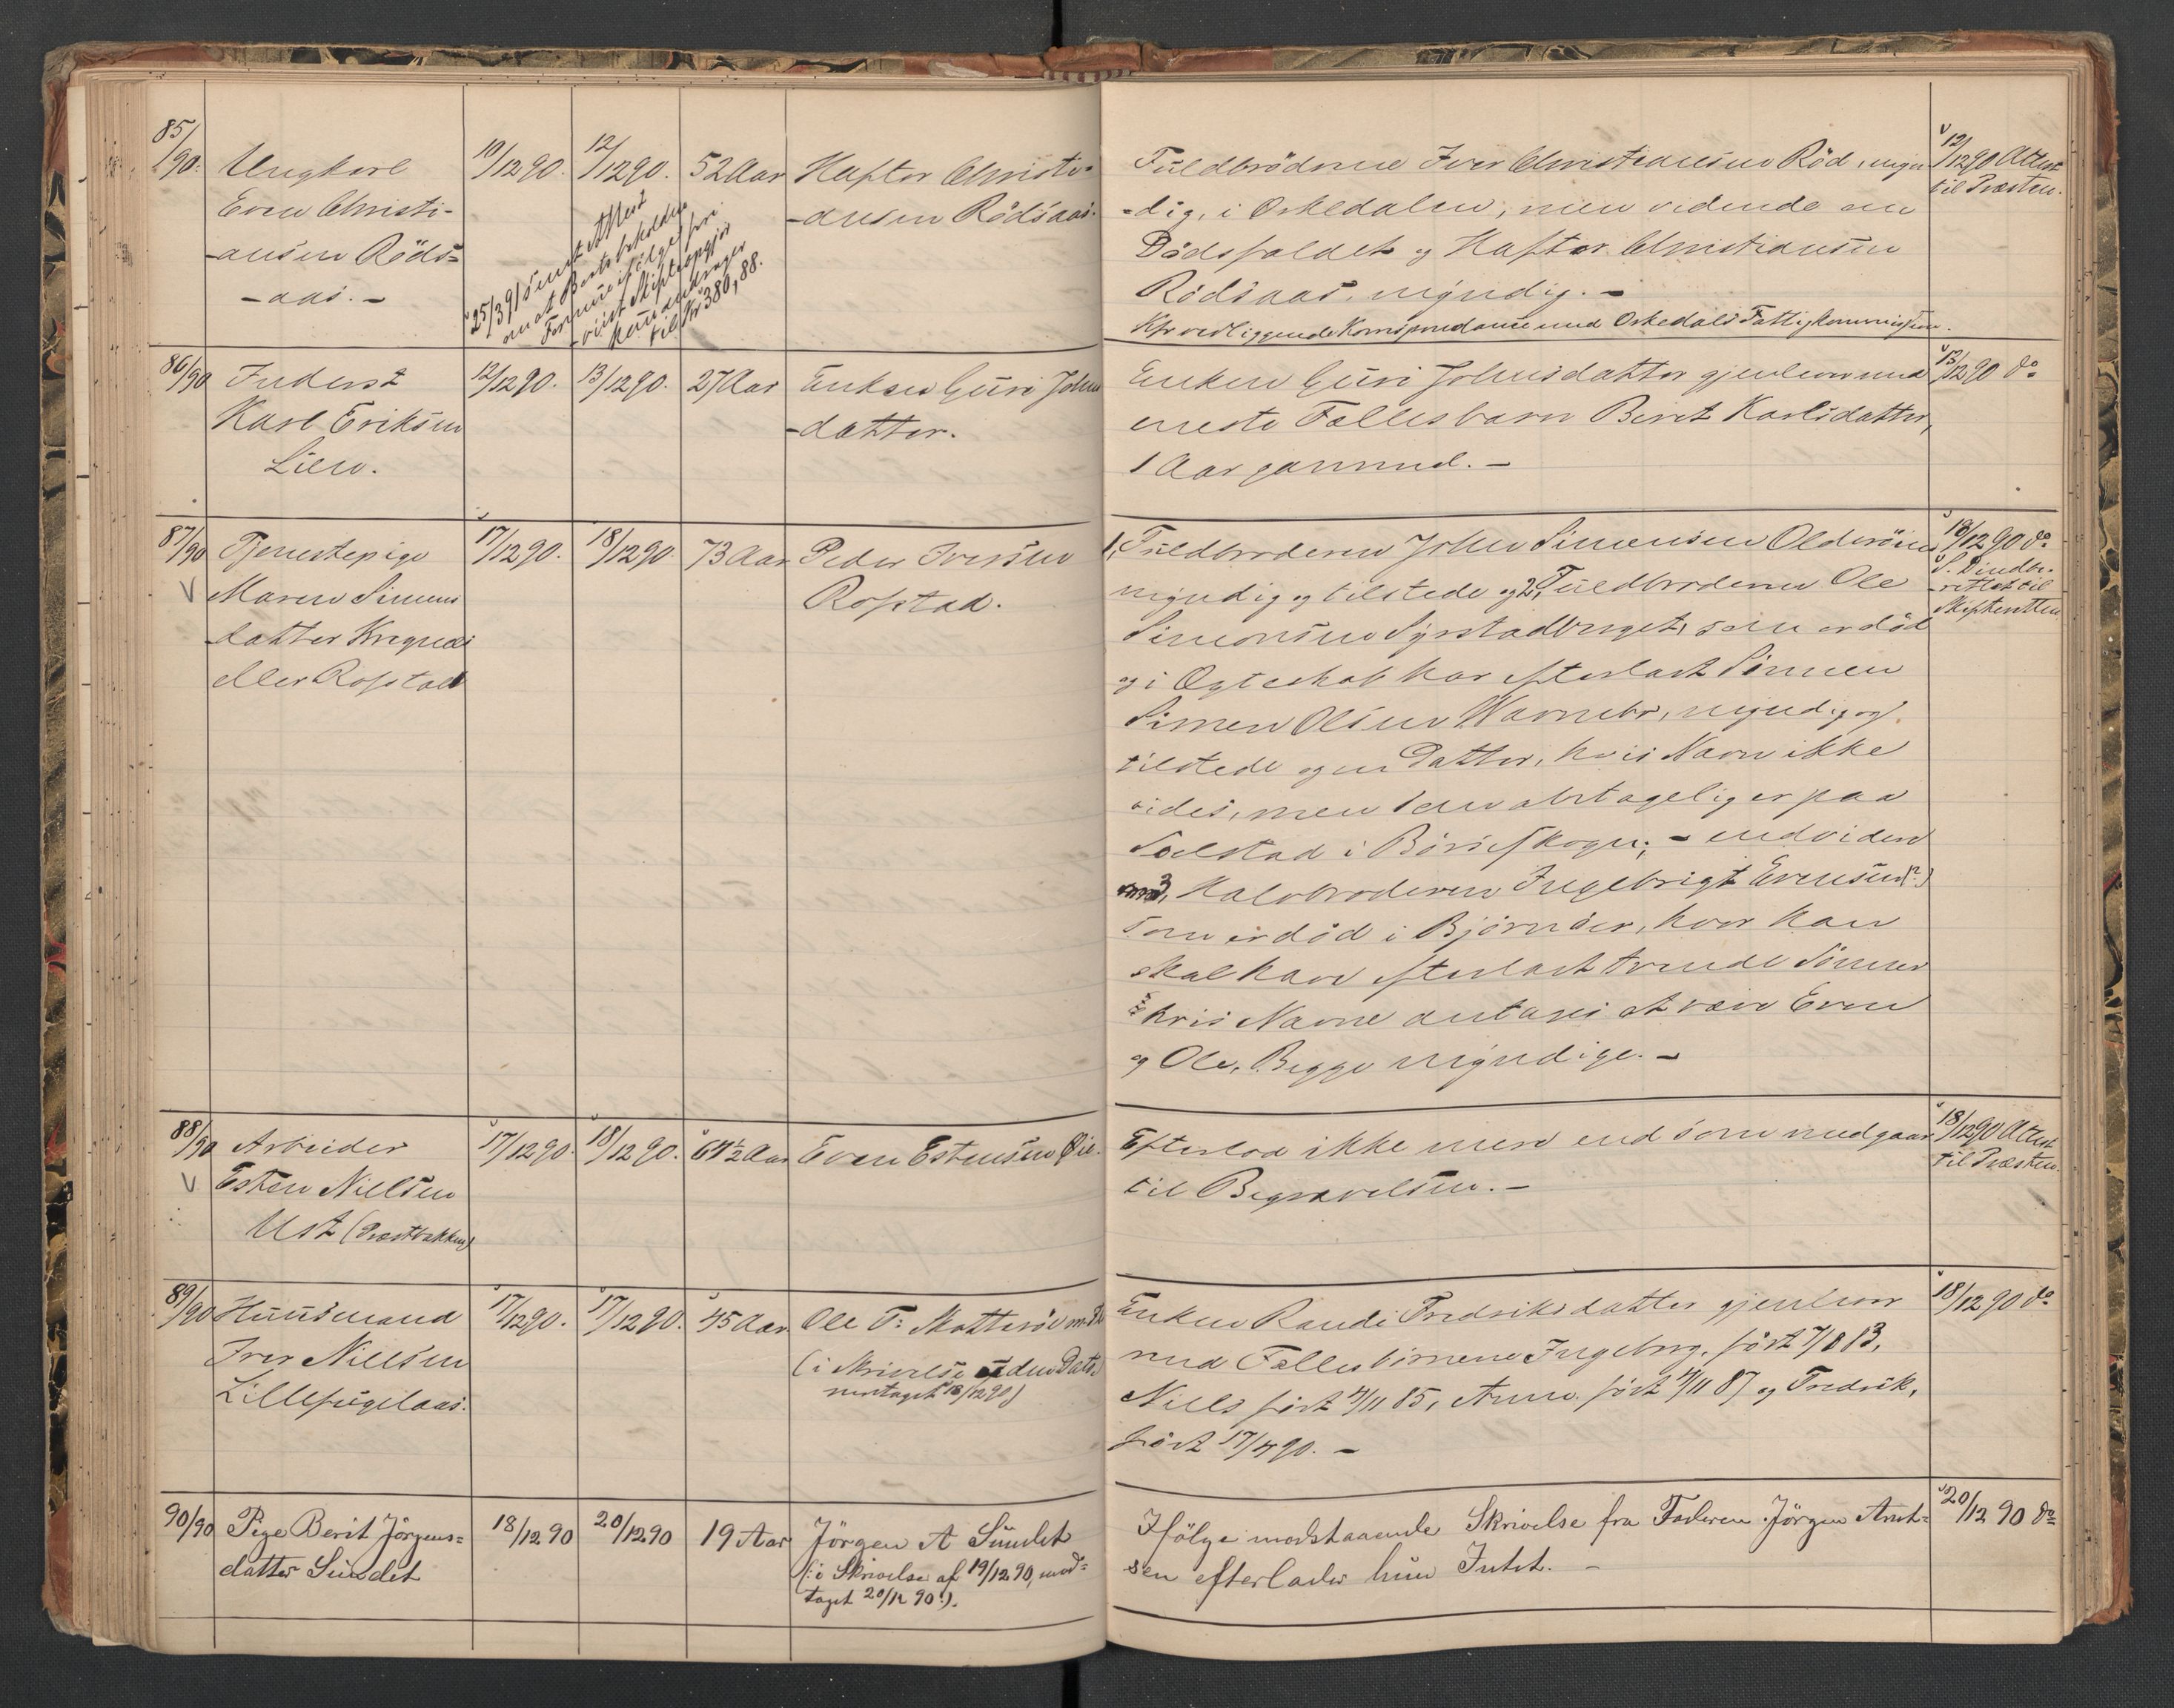 85/90. Ungkarl
Even Christi-
-ansen Röds-
-aas. -
10/12 90.
12/12 90.
25/3 91 sendt Attest
om at Boets beholdne
Formue ifölge
Skifteopgjör
kun andrager
til Kr 380,88.
52 Aar
Haftor Christi-
-ansen Rödsaas.
Fuldbrödrene Iver Christiansen Röd, myn-
-dig, i Orkedalen, men vidende om
Dödsfaldet og Haftor Christiansen
Rödsaas, myndig. -
Kfr vedliggende Korrespondance med Orkedals Fattigkommission.
12/12 90 Attest
til Præsten.
86/90 Inderst
Karl Eriksen
Lien.
12/12 90.
13/12 90.
27 Aar
Enken Guri Johns
-datter.
Enken Guri Johnsdatter gjenlever med
eneste Fællesbarn Beret Karlsdatter,
1 Aar gammel. -
13/12 90 do
87/90 Tjenestepige
Maren Simens
datter
eller Rofstad
17/12 90.
18/12 90.
73 Aar
Peder Iversen
Rofstad.
1, Fuldbroderen John Simensen Olderöien
myndig og tilstede og 2, Fuldbroderen Ole
Simonsen Syrstadbruget, som er död
og i Ægteskab har efterladt Sönnen
Simen Olsen Havnebr, myndig og
tilstede og en Datter, hvis Navn ikke
vides, men som antagelig er paa
Solstad i Börseskogn; - endvidere
3, Halvbroderen Ingebrigt Evensen (?)
som er död i Björnör, hvor han
skal have efterladt tvende Sönner
hvis Navne antages at være Even
og Ole, Begge myndige. -
18/12 90 do
S. D. indbe-
-rettet til
Skifteretten
88/90 Arbeider
Esten Nielsen
Ust (Præstbakken)
17/12 90.
18/12 90.
Even Estensen Öie.
Efterlod ikke mere end som medgaar
til Begravelsen. -
18/12 90 Attest
til Præsten.
89/90 Huusmand
Iver Nielsen
Lillefuglaas.
17/12 90.
17/12 90.
45 Aar
Ole T.
(i Skrivelse uden Dato
modtaget 18/12 90)
Enken Randi Fredriksdatter gjenlever
med Fællesbörnene Ingeborg, född 7/8 83,
Niels född 4/11 85, Anne född 4/11 87 og Fredrik,
född 17/4 90. -
18/12 90 do
90/90 Pige Berit Jörgens-
datter Sundet
18/12 90
20/12 90
19 Aar
Jörgen A Sundet
(:i Skrivelse af 19/12 90, mod-
taget 20/12 90:).
Ifölge modstaaende Skrivelse fra Faderen Jörgen Arnt-
sen efterlader hun Intet. -
20/12 90 do